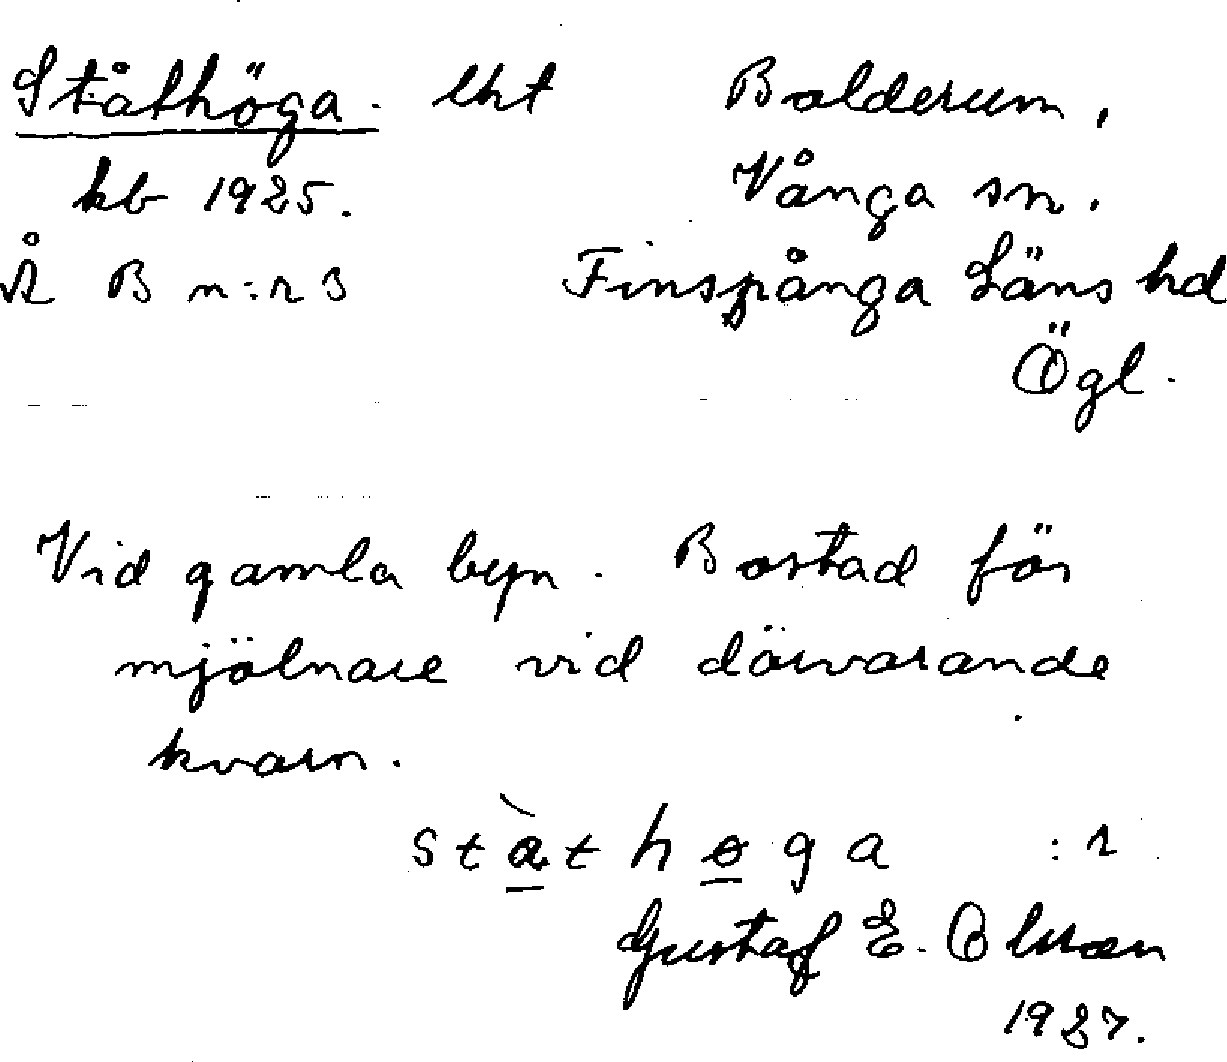 Ståthöga. lht Balderum,
kb 1925. Vånga sn.
Å B n:r 3 Finspånga Läns hd
Ögl.
Vid gamla byn. Bostad för
mjölnare vid därvarande
kvarn.
stàthøga :r
Gustaf E. Olsson
1927.